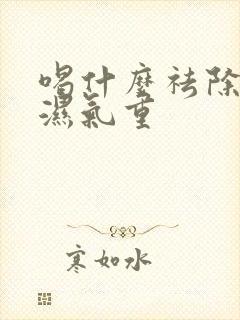 喝什麼祛除
濕氣重
寒如水